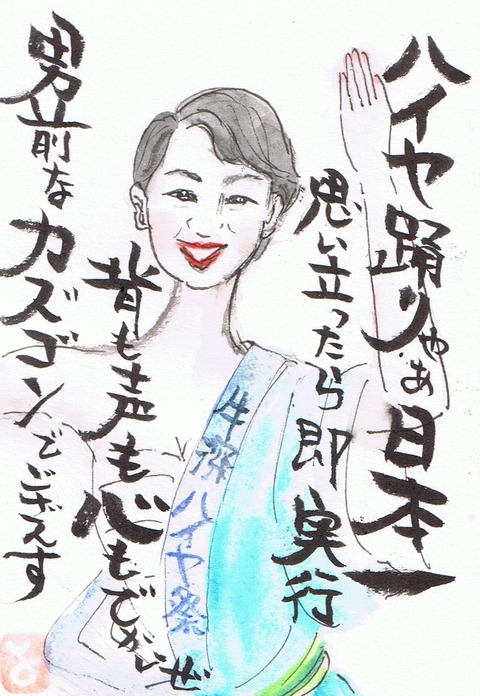 ハイヤ踊りゃあ日本一
思い立ったら即実行
背も声も心もでかいぜ
男前なカズゴンでござんす
牛深ハイヤ祭